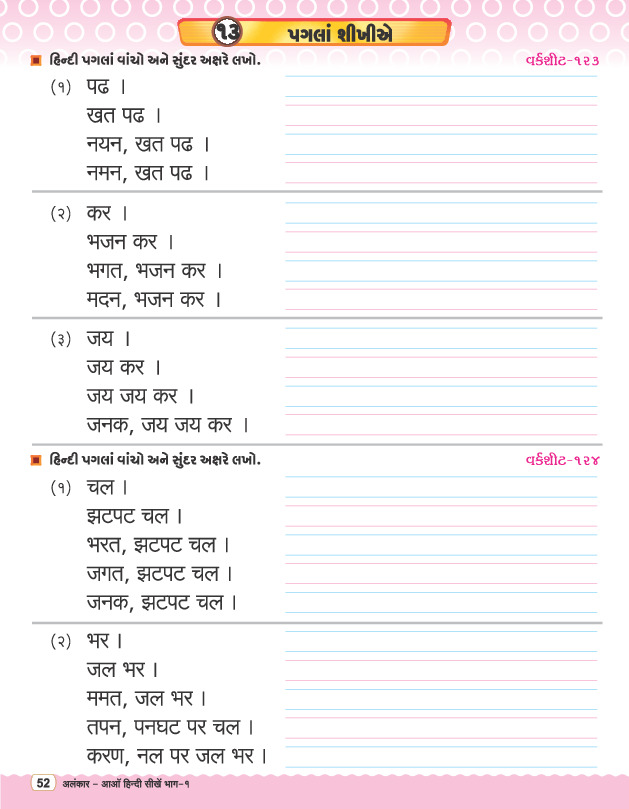 ૧૩ પગલાં શીખીએ
હિન્દી પગલાં વાંચો અને સુંદર અક્ષરે લખો. વર્કશીટ-૧૨૩
(૧) पढ ।
खत पढ ।
नयन, खत पढ ।
नमन, खत पढ ।
(૨) कर ।
भजन कर ।
भगत, भजन कर ।
मदन, भजन कर ।
(૩) जय ।
जय कर ।
जय जय कर ।
जनक, जय जय कर ।
હિન્દી પગલાં વાંચો અને સુંદર અક્ષરે લખો. વર્કશીટ-૧૨૪
(૧) चल ।
झटपट चल ।
भरत, झटपट चल ।
जगत, झटपट चल ।
जनक, झटपट चल ।
(૨) भर ।
जल भर ।
ममत, जल भर ।
तपन, पनघट पर चल ।
करण, नल पर जल भर ।
52 अलंकार - आओ हिन्दी सीखें भाग-१